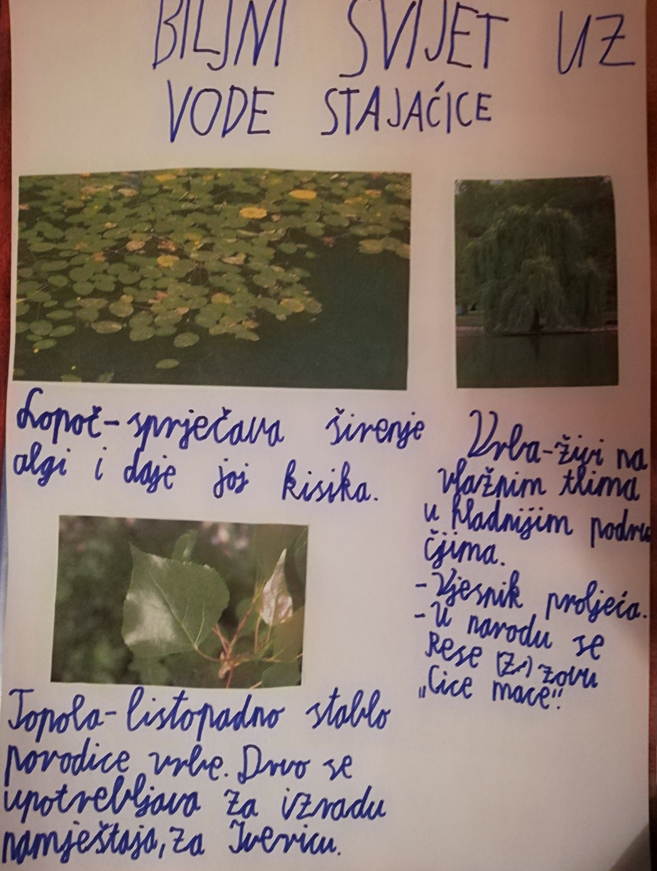 BILJNI SVIJET UZ
VODE STAJAĆICE
Lopoč-sprječava širenje
algi i daje joj kisika.
Vrba-živi na
vlažnim tlima
u hladnijim podru
čjima.
-Vjesnik proljeća.
-U narodu se
Rese zovu
„Cice mace“.
Topola-listopadno stablo
porodice vrbe. Drvo se
upotrebljava za izradu
namještaja, za Ivericu.